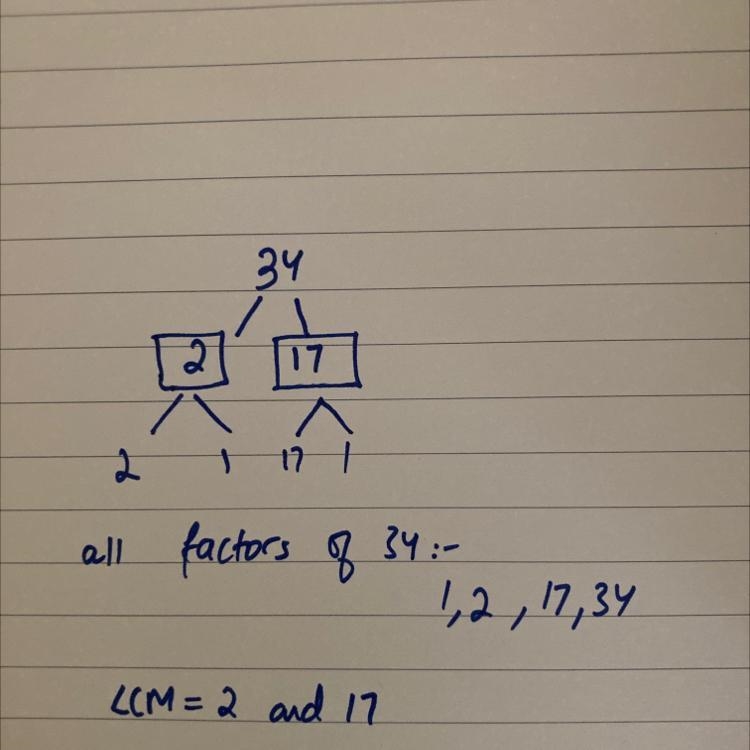 34
2 17
2 1 17 1
all factors of 34:-
1,2,17,34
LCM = 2 and 17